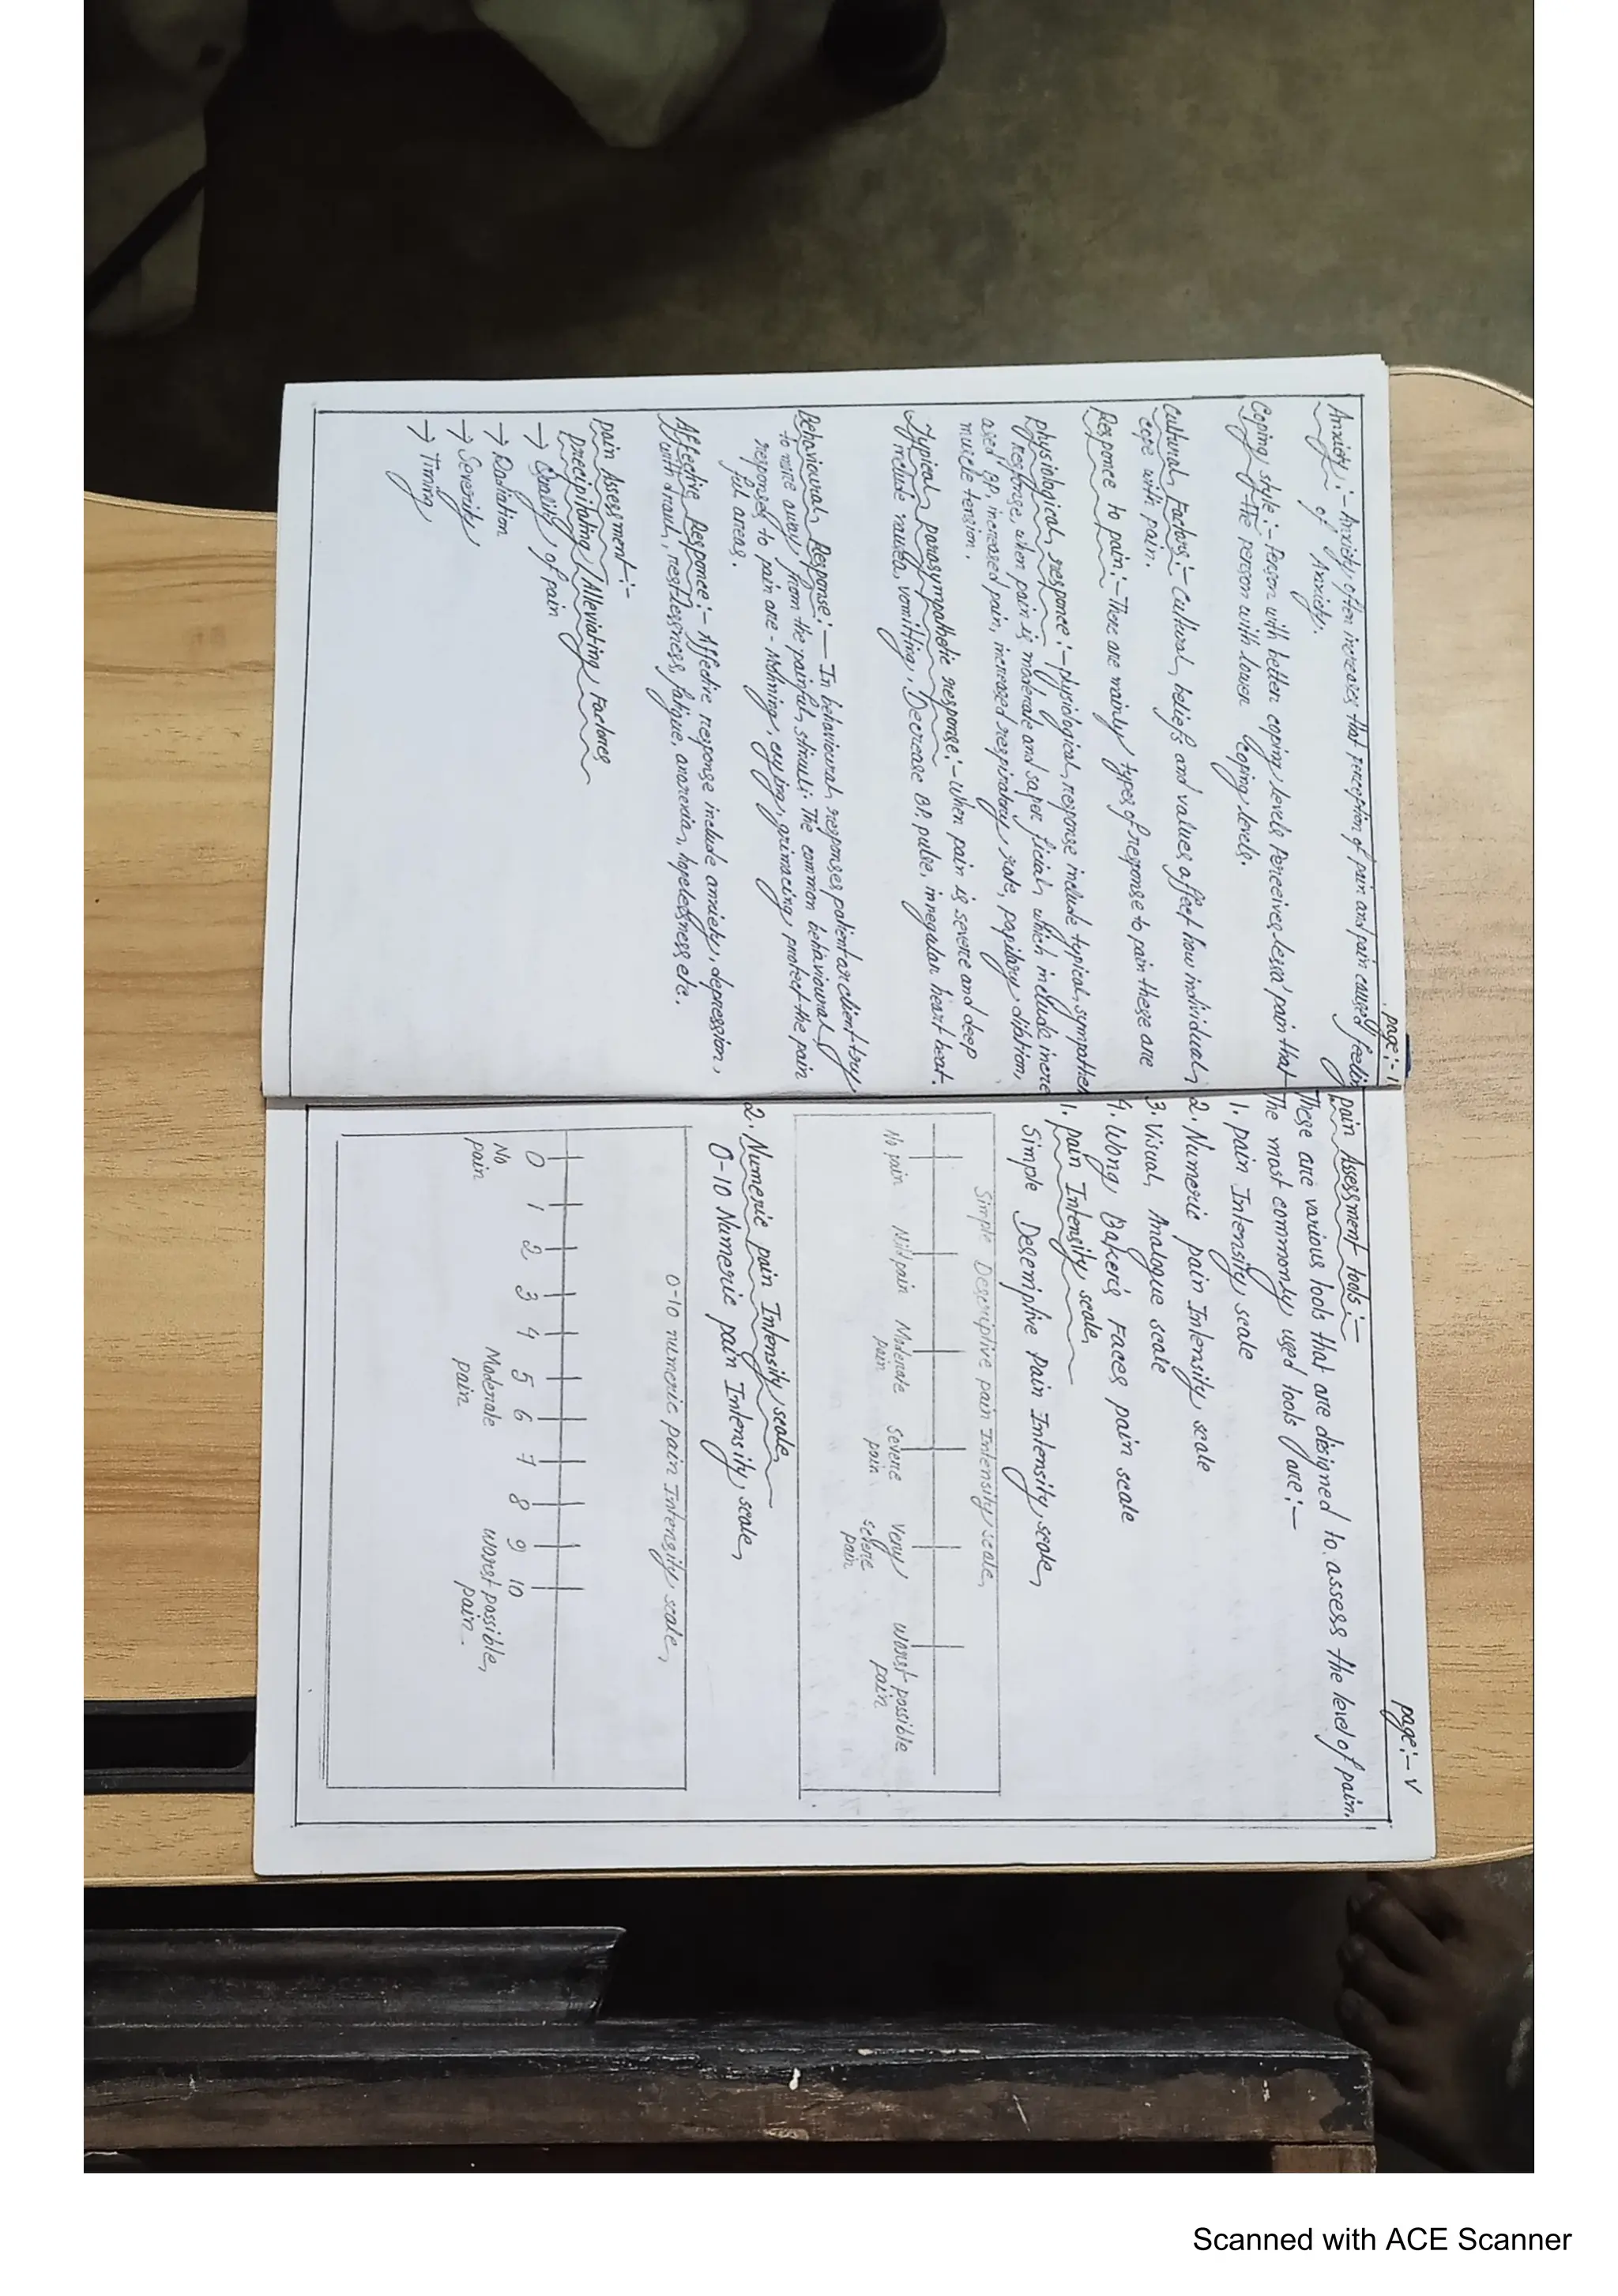 page:- 1
Anxiety :- Anxiety often increases that perception of pain and pain caused feelin
of Anxiety.
Coping style :- Person with better coping levels, Perceives less pain that
the person with lower Coping levels.
Cultural Factors :- Cultural beliefs and values affect how individual
cope with pain.
Responce to pain :- There are mainly types of response to pain these are
physiological responce :- physiological response include typical sympathe
response, when pain is moderate and super ficial which include incre
ased BP, increased pain, increased respiratory rate, papilary dilation,
muscle tension.
Typical parasympathetic response :- When pain is severe and deep
include nausea, vomitting, Decrease BP, pulse, irregular heart beat.
Behavioural Response :- In behavioural responses, patient or client try
to move away from the painful stimuli. The common behavioural
responses to pain are - Mohning, crying, grimacing, protect the pain
ful areas.
Affective Responce :- Affective response include anxiety, depression,
with drawl, restlessness, fatigue, anorexia, hopelessness etc.
pain Assessment :-
precipitating / Alleviating Factores
→ Quality of pain
→ Radiation
→ Severity
→ Timing
page :- V
pain Assessment tools :-
These are various tools that are designed to assess the level of pain.
The most commonly used tools are :-
1. pain Intensity scale
2. Numeric pain Intensity scale
3. Visual Analogue scale
4. Wong Baker's Faces pain scale
1. pain Intensity scale
Simple Descriptive Pain Intensity scale
Simple Descriptive pain Intensity scale
No pain Mild pain Moderate pain Severe pain Very severe pain Worst possible pain
2. Numeric pain Intensity scale
0-10 Numeric pain Intensity scale
0-10 numeric pain Intensity scale
0 1 2 3 4 5 6 7 8 9 10
No pain Moderate pain worst possible pain
Scanned with ACE Scanner